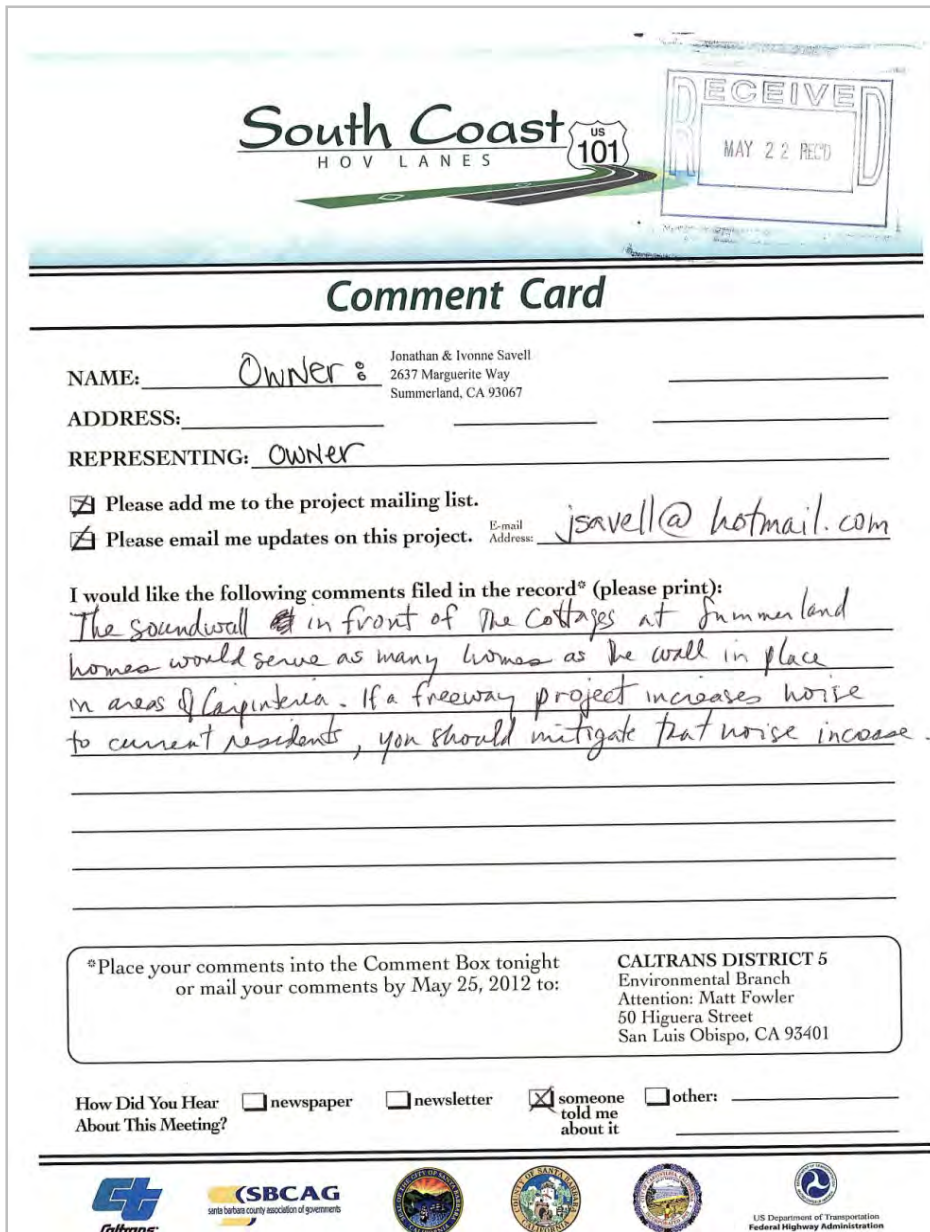 South Coast
HOV LANES
US
101
RECEIVED
MAY 22 REC'D
Comment Card
NAME: Owner:
Jonathan & Ivonne Savell
2637 Marguerite Way
Summerland, CA 93067
ADDRESS:
REPRESENTING: Owner
Please add me to the project mailing list.
Please email me updates on this project. E-mail Address: jsavell@hotmail.com
I would like the following comments filed in the record* (please print):
The soundwall in front of The Cottages at Summerland
homes would serve as many homes as the wall in place
in areas of Carpinteria. If a freeway project increases noise
to current residents, you should mitigate that noise increase.
*Place your comments into the Comment Box tonight
or mail your comments by May 25, 2012 to:
CALTRANS DISTRICT 5
Environmental Branch
Attention: Matt Fowler
50 Higuera Street
San Luis Obispo, CA 93401
How Did You Hear
About This Meeting?
newspaper
newsletter
someone
told me
about it
other:
Caltrans
SBCAG
santa barbara county association of governments
US Department of Transportation
Federal Highway Administration